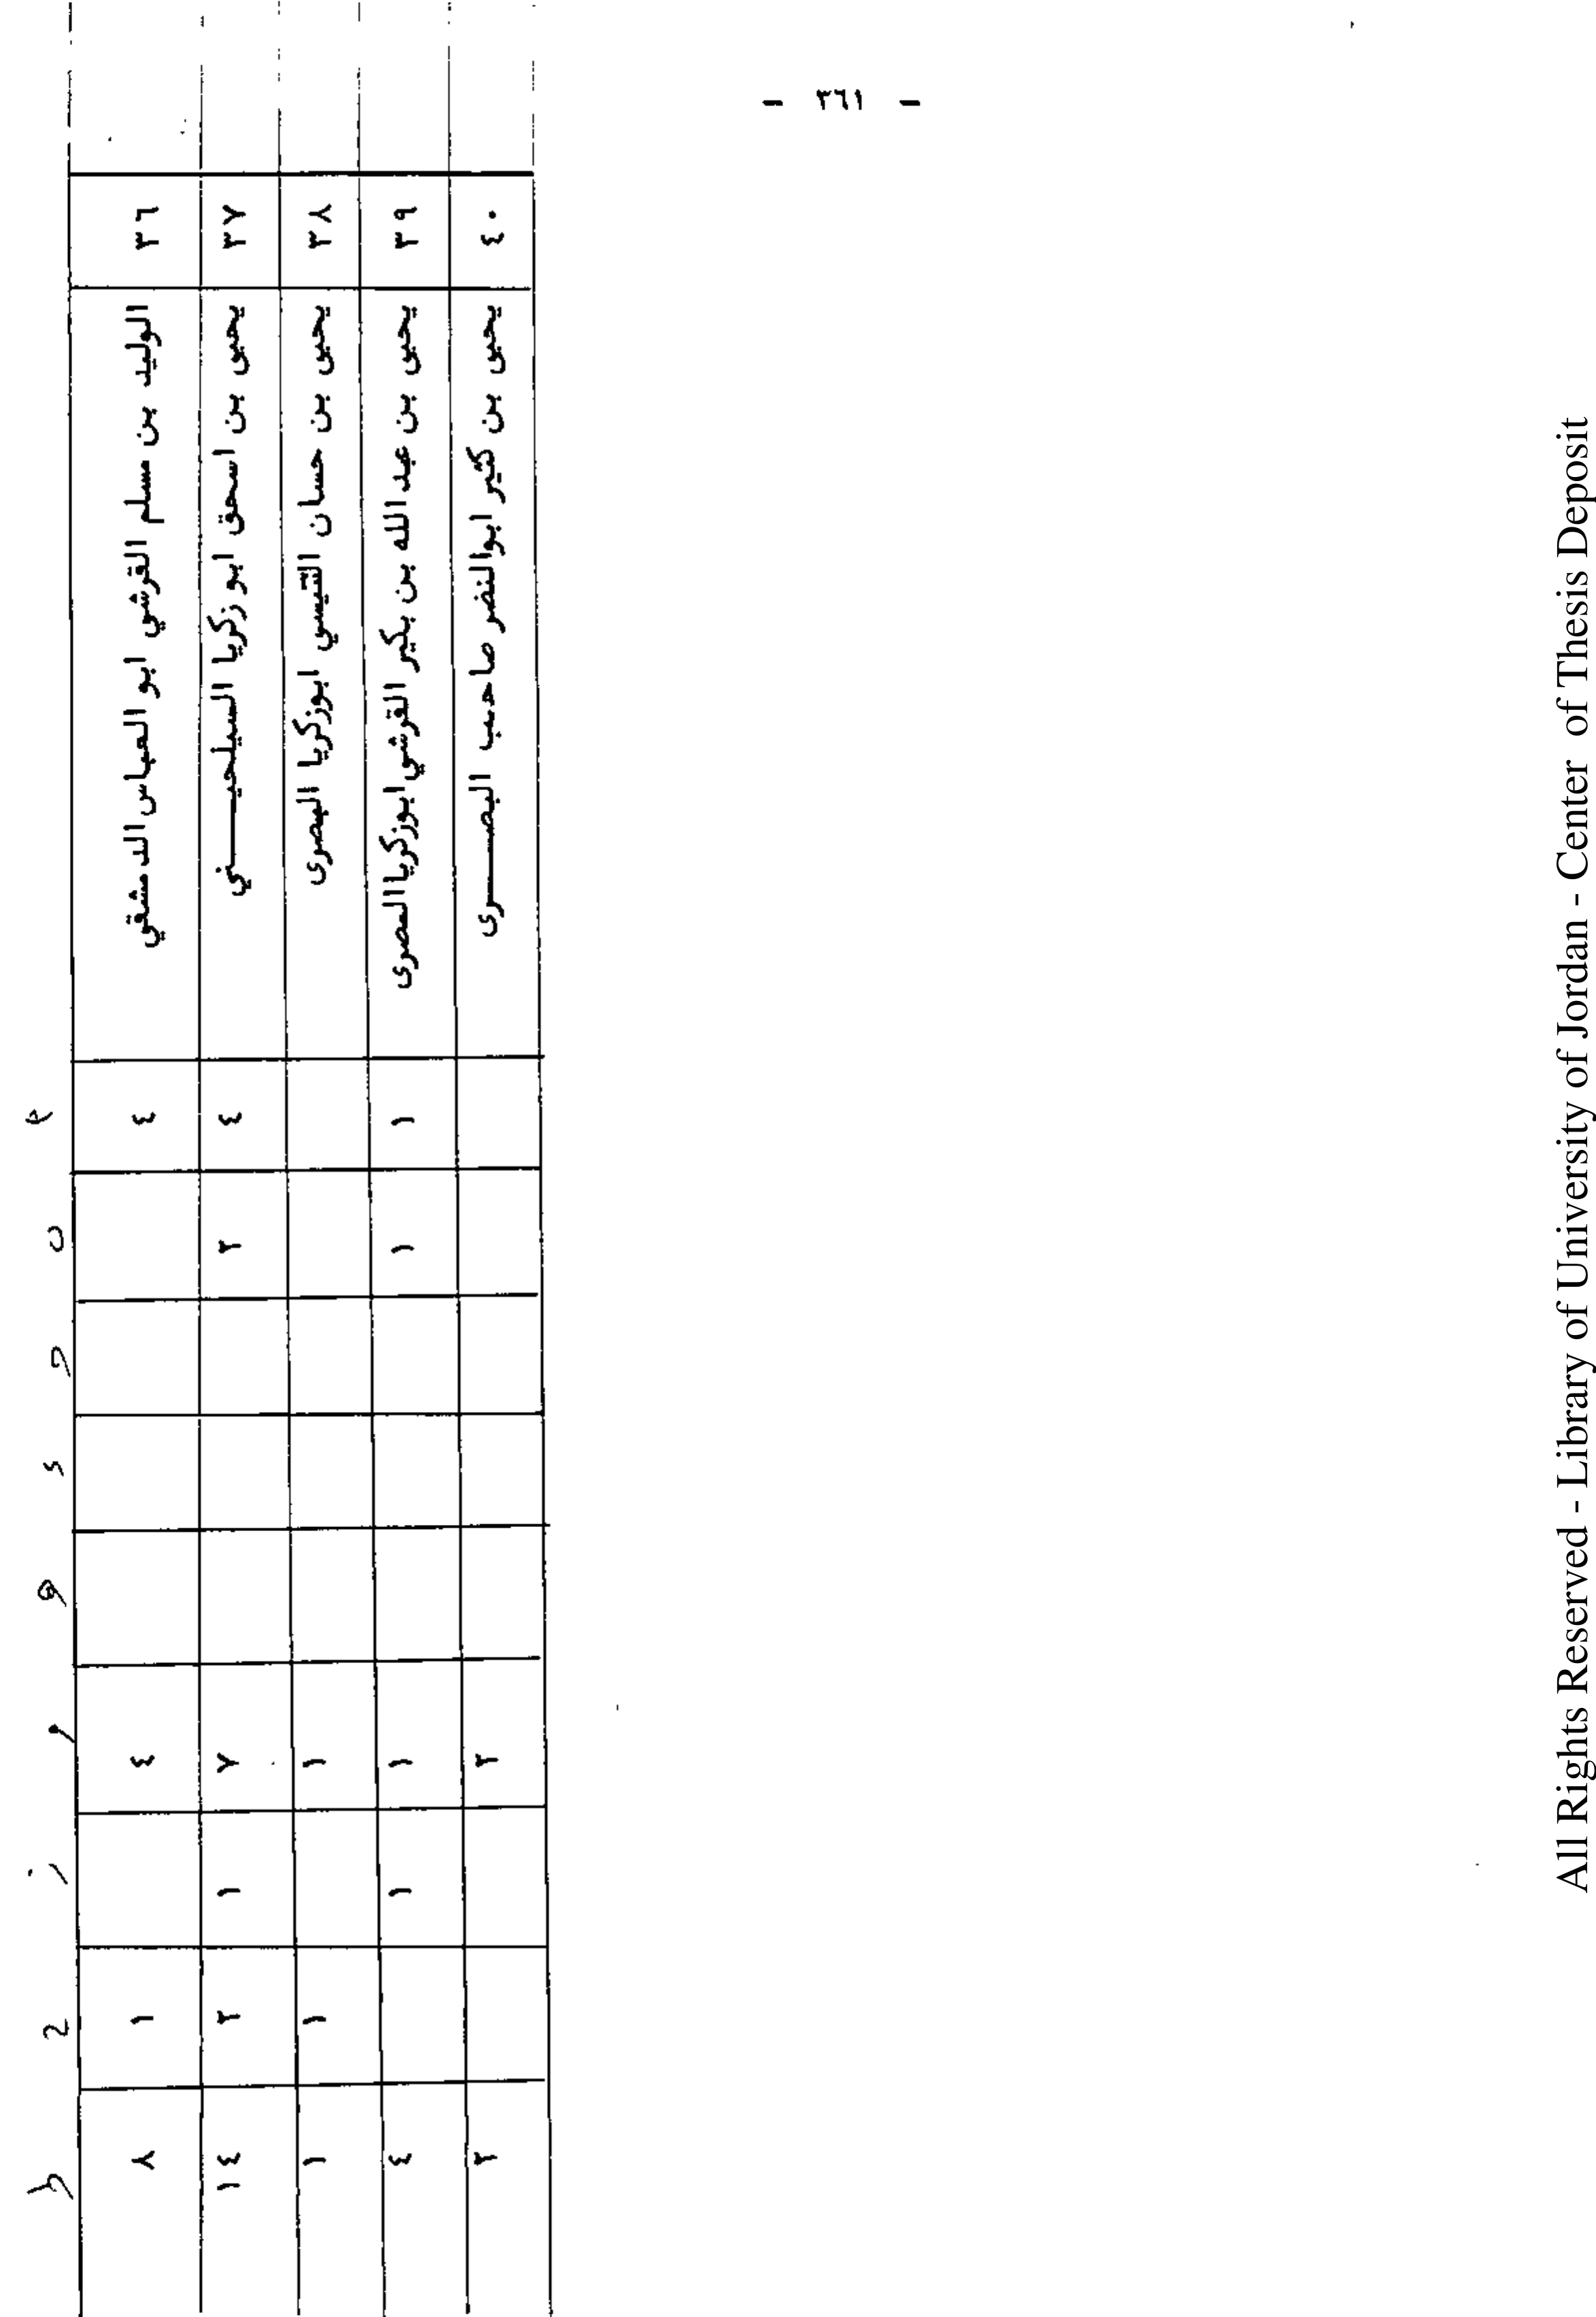 - ٣٦١ -
٣٦ الوليد بن مسلم القرشي ابو العباس الدمشقي ٤ ٤ ١ ٨
٣٧ يحيى بن اسحق ابو زكريا السيلحيـــني ٤ ٢ ٧ ١ ٢ ١٤
٣٨ يحيى بن حسان التنيسي ابوزكريا البصرى ١ ١ ١
٣٩ يحيى بن عبد الله بن بكير القرشي ابوزكريا المصرى ١ ١ ١ ١ ٤
٤٠ يحيى بن كثير ابوالنضر صاحب البصـــرى ٢ ٢
All Rights Reserved - Library of University of Jordan - Center of Thesis Deposit